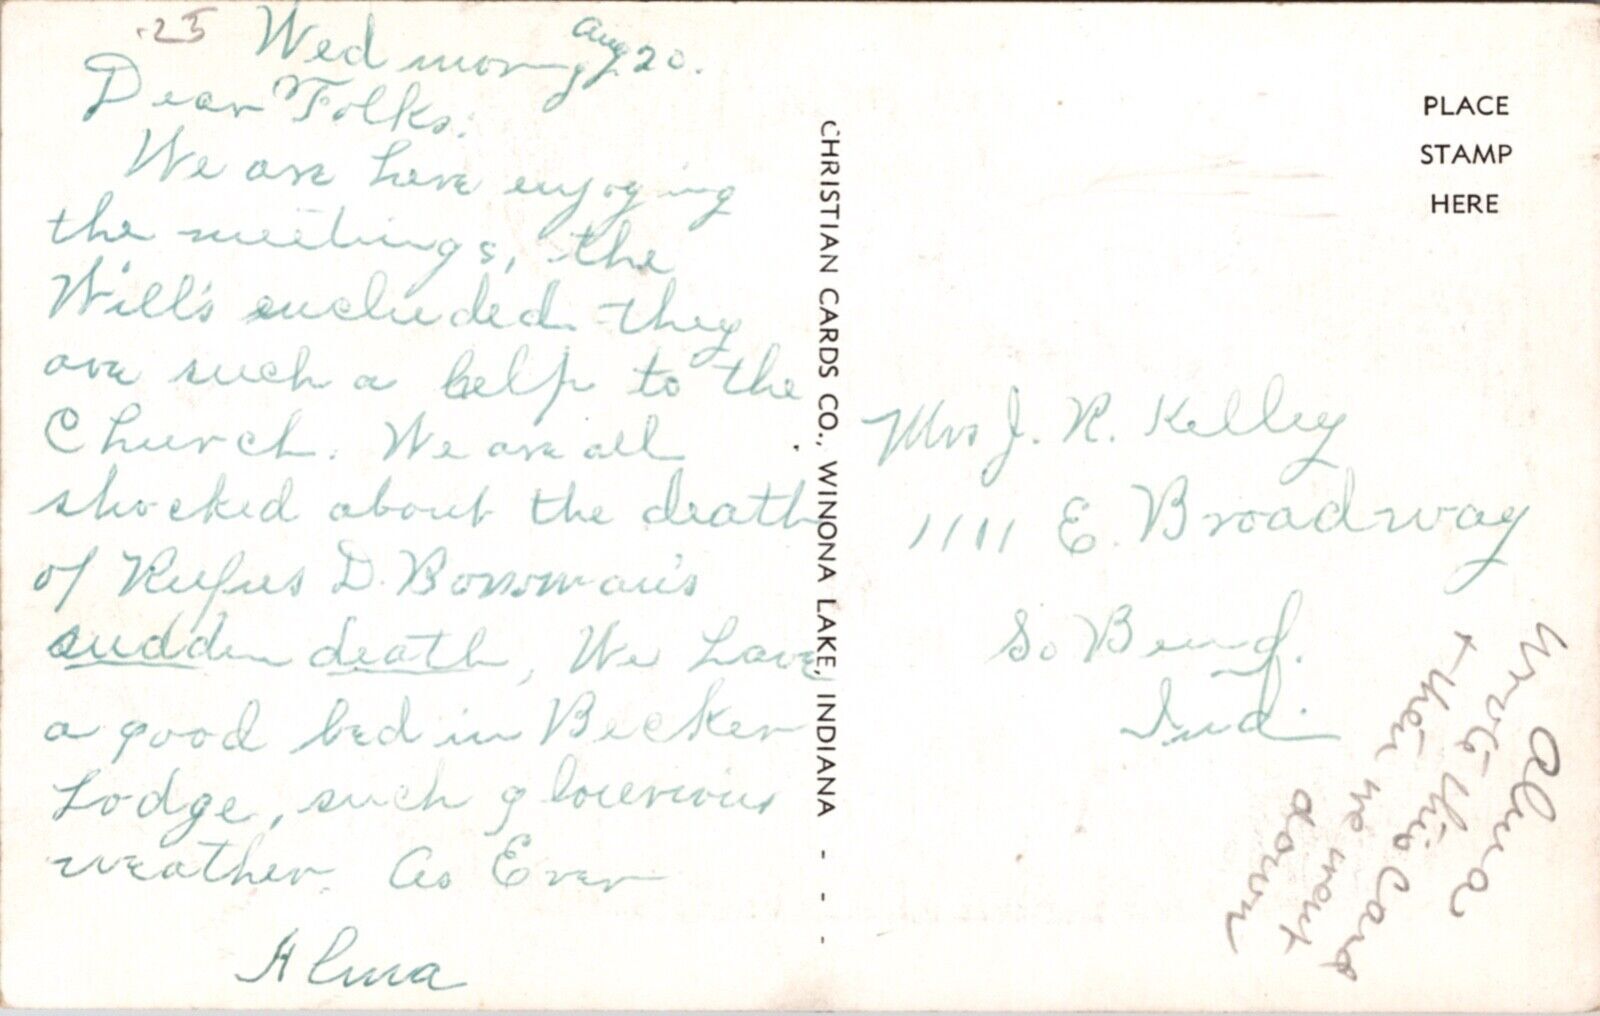 .25
Wed morning Aug 20.
Dear Folks:
We are here enjoying
the meetings, the
Will's encluded they
are such a help to the
Church. We are all
shocked about the death
of Rufus D. Bowman's
sudden death, We have
a good bed in Becker
Lodge, such glourious
weather. As Ever
Alma
CHRISTIAN CARDS CO., WINONA LAKE, INDIANA - - -
PLACE
STAMP
HERE
Mrs J. R. Kelley
1111 E. Broadway
So Bend.
Ind.
Alma
wrote this Card
then we went
down